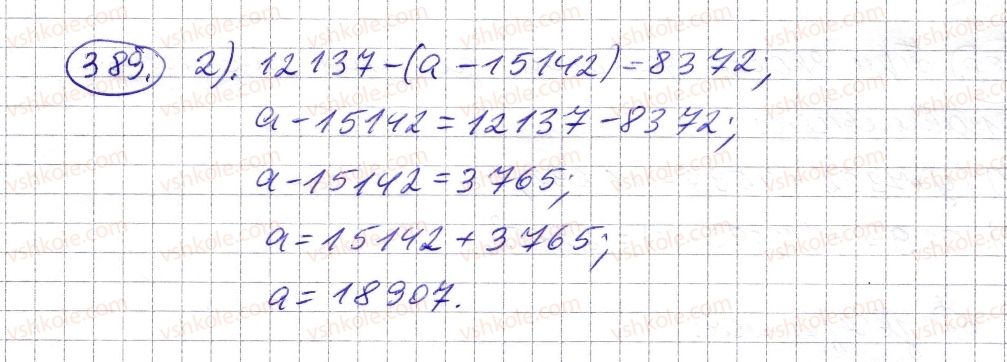 389. 2). 12137-(a-15142)=8372;
a-15142=12137-8372;
a-15142=3765;
a=15142+3765;
a=18907.